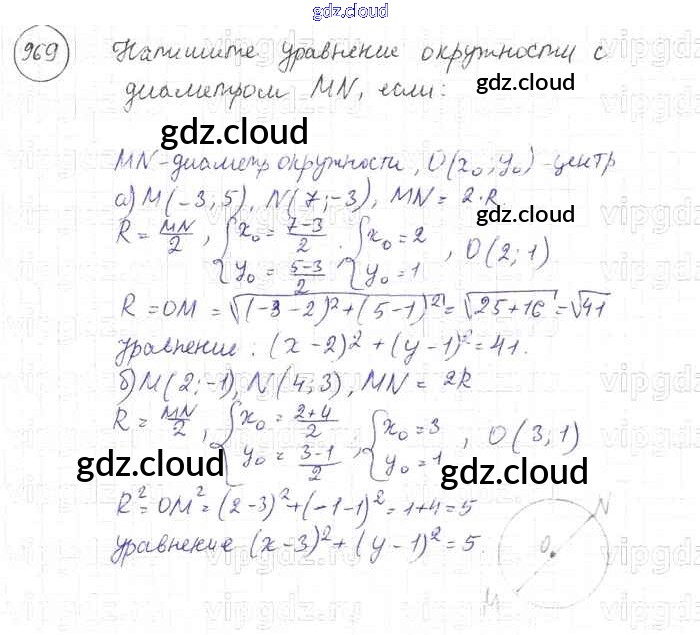 gdz.cloud
969 Напишите уравнение окружности с
диаметром MN, если: gdz.cloud
gdz.cloud gdz.cloud
MN-диаметр окружности, O(x₀; y₀)-центр
а) M(-3; 5), N(7; -3), MN = 2·R.
R = MN/2, { x₀ = (7-3)/2, y₀ = (5-3)/2; { x₀ = 2, y₀ = 1, O(2; 1)
R = OM = √((-3-2)² + (5-1)²) = √(25+16) = √41
Уравнение: (x-2)² + (y-1)² = 41.
б) M(2; -1), N(4; 3), MN = 2R
R = MN/2, { x₀ = (2+4)/2, y₀ = (3-1)/2; { x₀ = 3, y₀ = 1, O(3; 1)
gdz.cloud gdz.cloud
R² = OM² = (2-3)² + (-1-1)² = 1+4 = 5
уравнение (x-3)² + (y-1)² = 5.
N
O
M
gdz.cloud